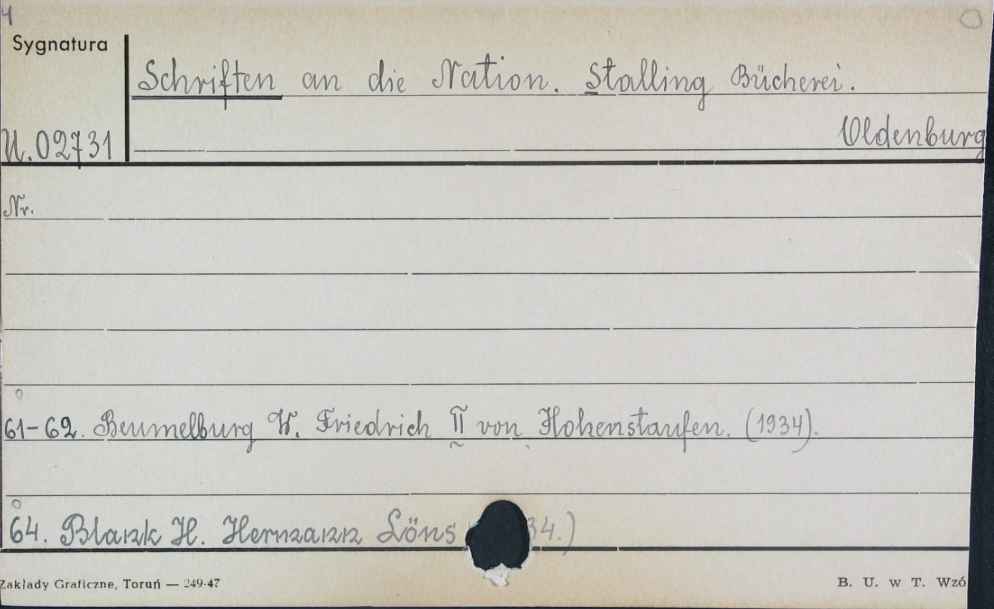 4
Sygnatura
Schriften an die Nation. Stalling Bücherei.
U.02731
Oldenburg
Nr.
61-62. Beumelburg W. Friedrich II von Hohenstaufen. (1934).
64. Blank H. Hermann Löns 34.)
Zaklady Graficzne, Toruń — 249-47
B. U. w T. Wzó